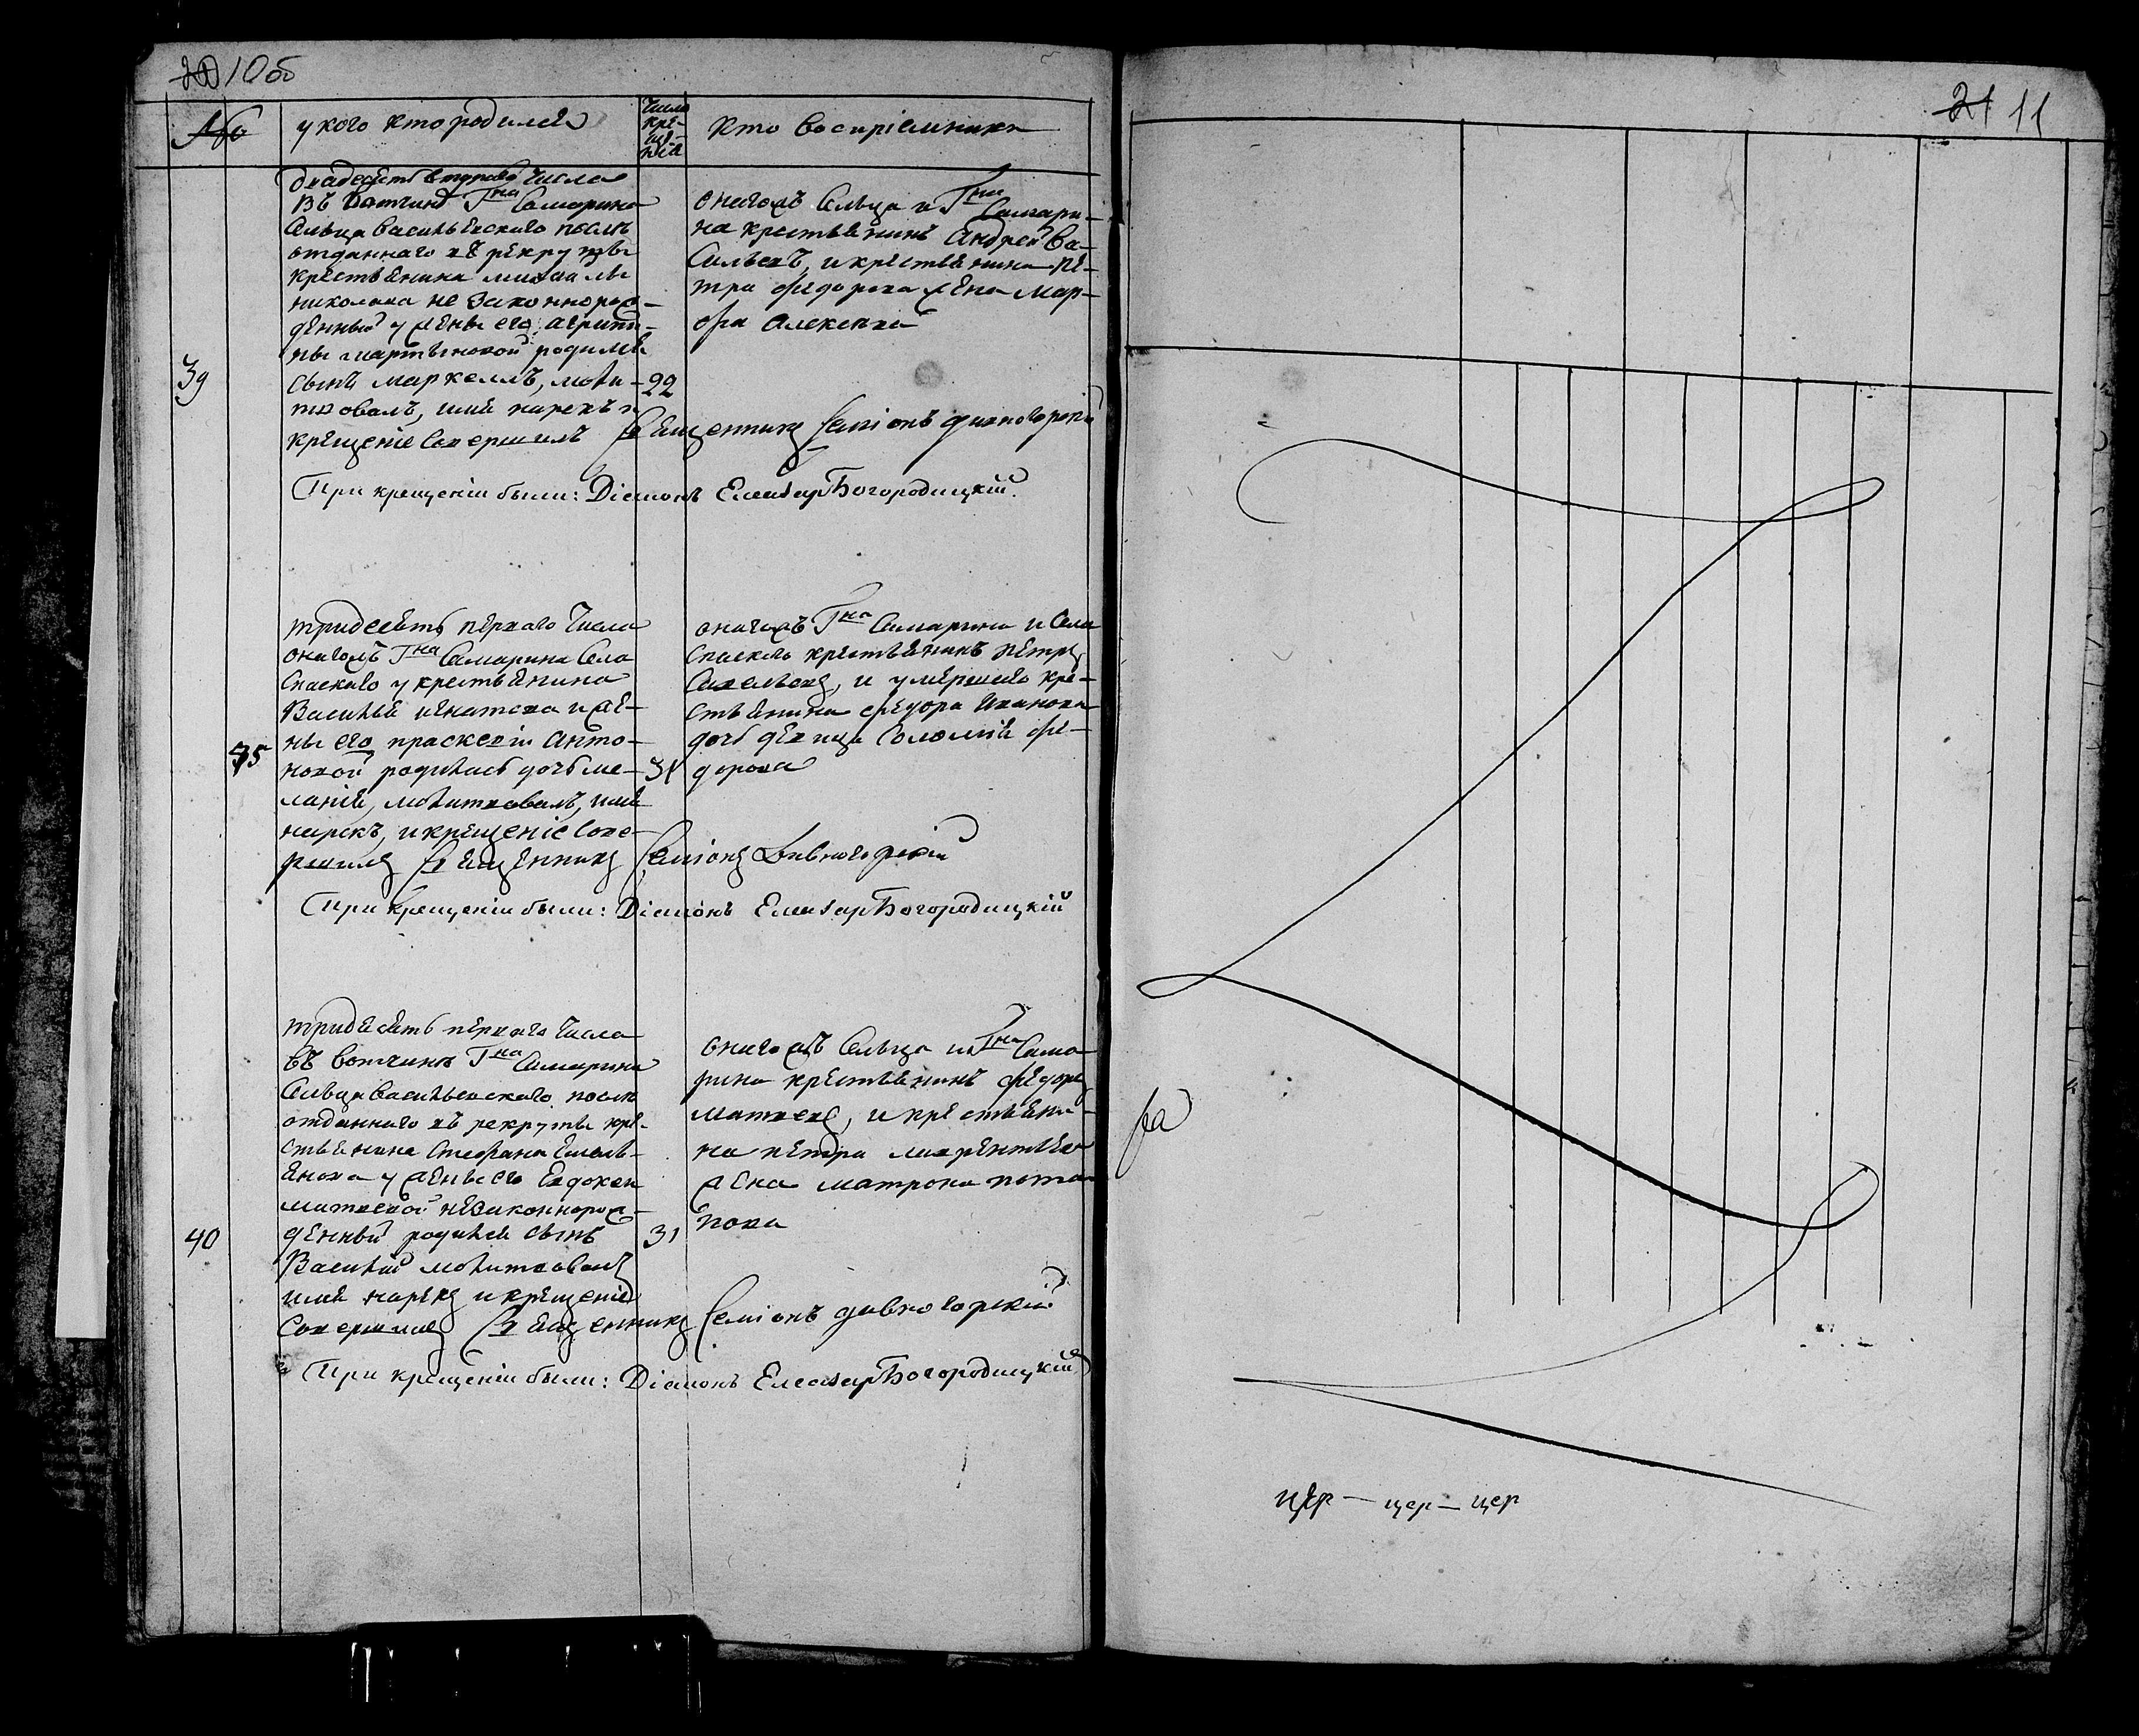 20 10об
№ у кого кто родился Число кре-ще-нія Кто воспріемники
двадесять втораго числа
въ вотчине Гна Самарина
Сельца Васильевскаго после
отданнаго въ рекруты
крестьянина михаилы
николаева не законнорож-
денный у жены его агрипи-
ны мартыновой родился
39 сынъ маркеллъ, моли- 22
твовалъ, имя нарекъ и
крещеніе совершилъ Священникъ Симіонъ дивногорскій
оногожъ Сельца и Гна Самари-
на крестьянинъ Андрей Ва-
сильевъ, и крестьянина пе-
тра федорова жена мар-
фа алексеева
При крещеніи были: Діаконъ Елеазаръ Богородицкій.
тридесять перваго числа
оногожъ Гна Самарина Села
Спаскаго у крестьянина
Василья игнатова и же-
ны его праскевіи анто-
35 новой родилась дочь ме- 31
ланія, молитвовалъ, имя
нарекъ, и крещеніе сове-
ршилъ Священникъ Симіонъ Дивногорскій
оногожъ Гна Самарина и Села
Спаскаго крестьянинъ петръ
Савельевъ, и умершаго кре-
стьянина федора Иванова
дочь девица Соломія фе-
дорова
При крещеніи были: Діаконъ Елеазаръ Богородицкій
тридесять перваго числа
въ вотчине Гна Самарина
Сельца Васильевскаго после
отданнаго въ рекруты кре-
стьянина Стефана Емель-
янова у жены его Евдокеи
матвеевой незаконнорож-
40 денный родился сынъ 31
Василій молитвовалъ
имя нарекъ и крещеніе
совершилъ Священникъ Симіонъ дивногорскій
оногожъ Сельца и Гна Сама-
рина крестьянинъ федоръ
матвеевъ, и крестьяни-
на петра лаврентьева
жена матрона пота-
пова
При крещеніи были: Діаконъ Елеазаръ Богородицкій
21 11
цер — цер — цер